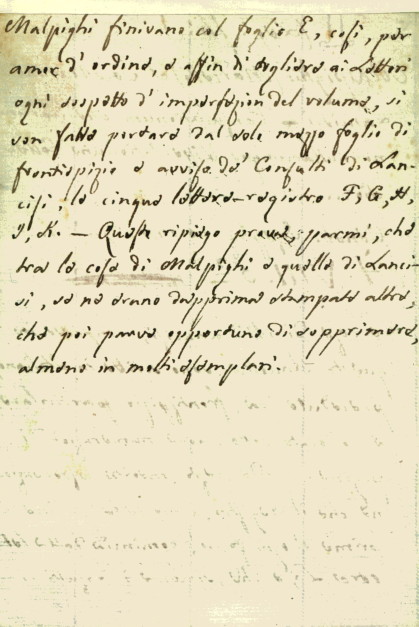 Malpighi finivano col foglio E, così, per
amor d'ordine, e affin di togliere ai Lettori
ogni sospetto d'imperfezion del volume, si
son fatte portare dal solo mezzo foglio di
frontispizio e avviso de' Consulti di Lan-
cisi, le cinque lettere-registro F, G, H,
I, K. — Questo ripiego prova, parmi, che
tra le cose di Malpighi e quelle di Lanci-
si, se ne erano dapprima stampate altre,
che poi parve opportuno di sopprimere,
almeno in molti esemplari.